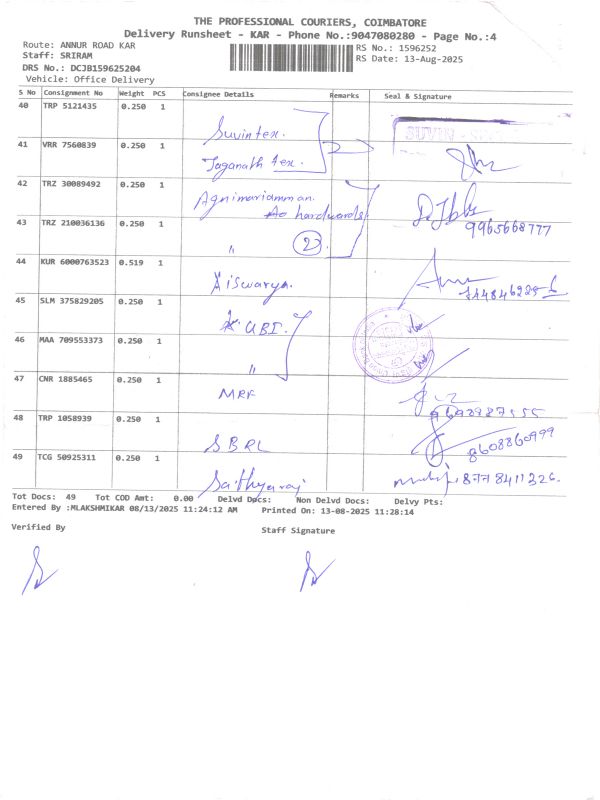 THE PROFESSIONAL COURIERS, COIMBATORE
Delivery Runsheet - KAR - Phone No.:9047080280 - Page No.:4
Route: ANNUR ROAD KAR
RS No.: 1596252
Staff: SRIRAM
RS Date: 13-Aug-2025
DRS No.: DCJB159625204
Vehicle: Office Delivery
S No Consignment No Weight PCS Consignee Details Remarks Seal & Signature
40 TRP 5121435 0.250 1 Suvintex. SUVIN
41 VRR 7560839 0.250 1 Jaganath tex.
42 TRZ 30089492 0.250 1 Agnimariamman.
Ao hardwards
43 TRZ 210036136 0.250 1 " 2 9965668777
44 KUR 6000763523 0.519 1 Aiswarya.
45 SLM 375829205 0.250 1 UBI.
46 MAA 709553373 0.250 1 "
47 CNR 1885465 0.250 1 MRF
48 TRP 1058939 0.250 1 SBRL 8608860999
49 TCG 50925311 0.250 1 Saithyaraj 8778411326.
Tot Docs: 49 Tot COD Amt: 0.00 Delvd Docs: Non Delvd Docs: Delvy Pts:
Entered By :MLAKSHMIKAR 08/13/2025 11:24:12 AM Printed On: 13-08-2025 11:28:14
Verified By
Staff Signature